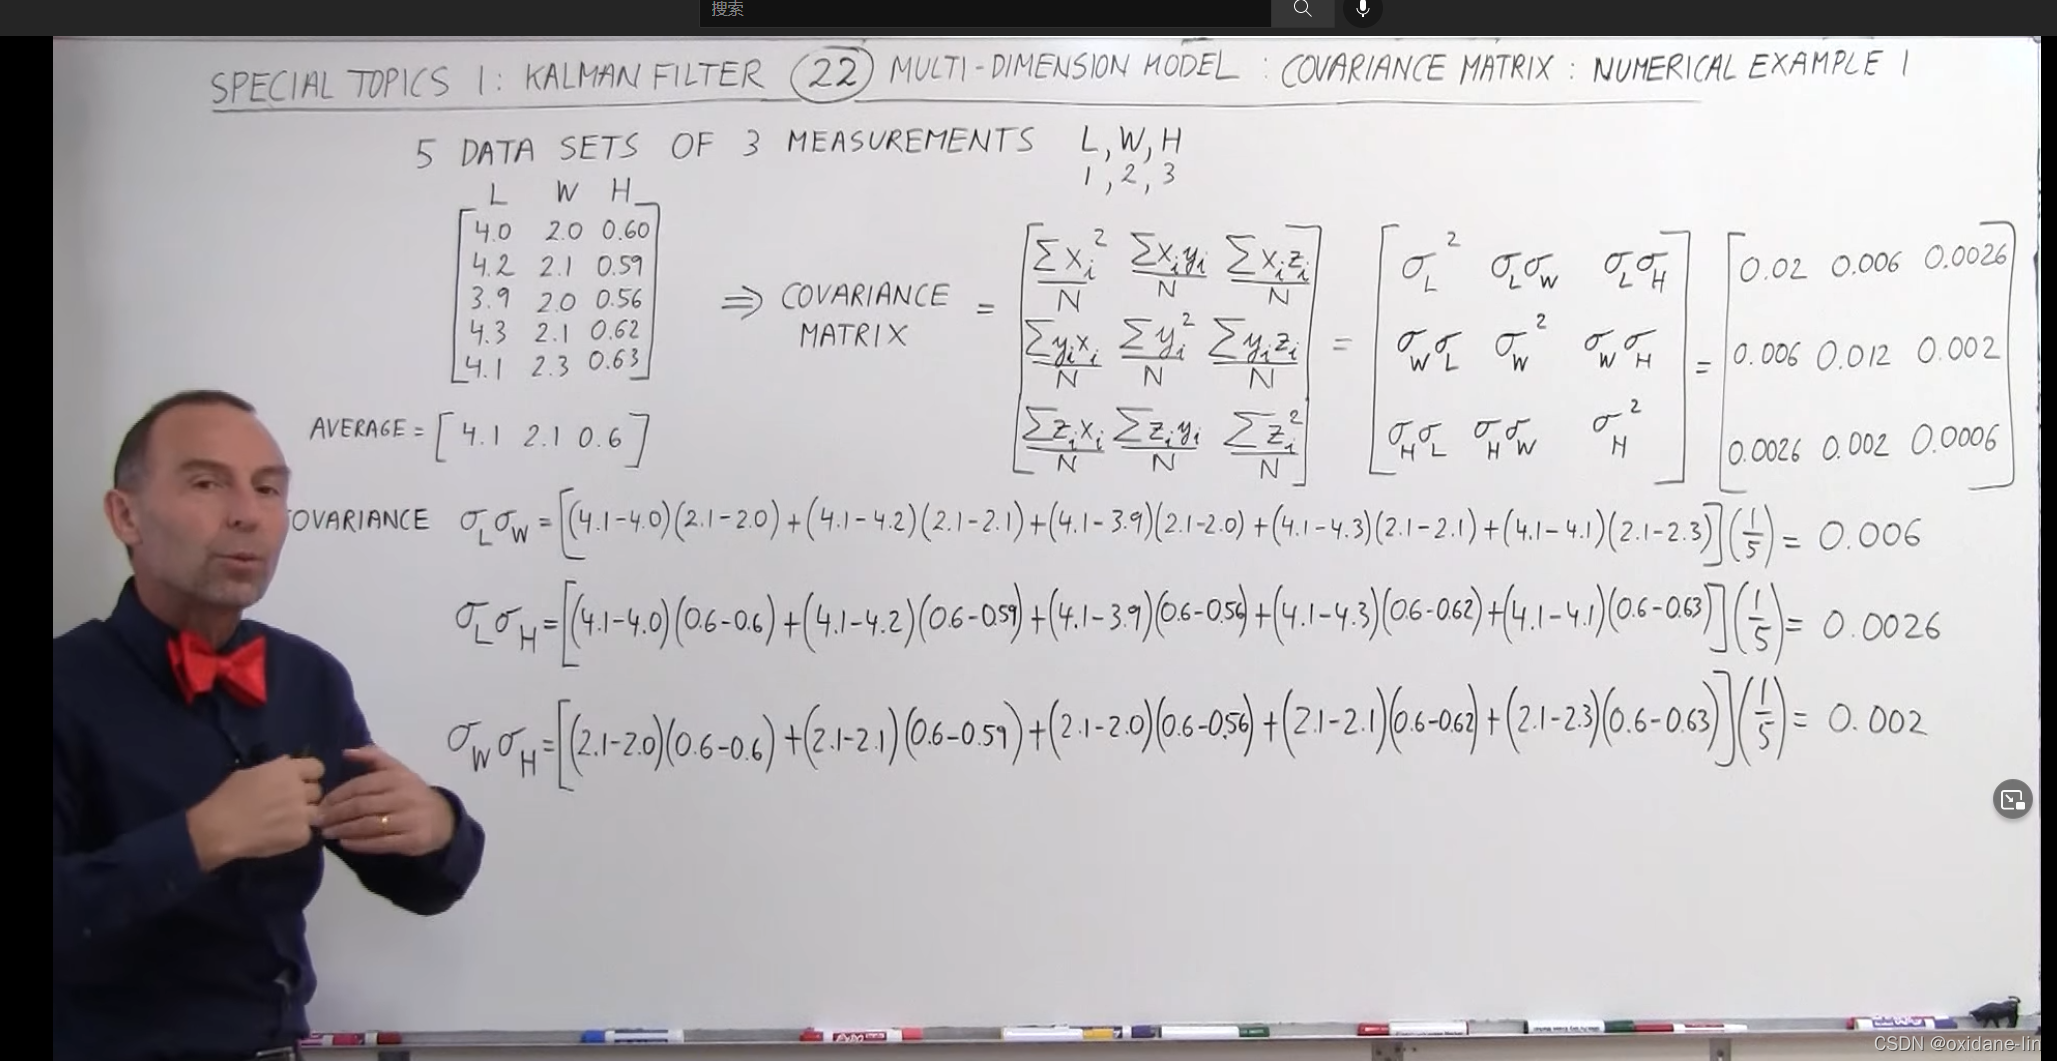 搜索
SPECIAL TOPICS 1: KALMAN FILTER (22) MULTI-DIMENSION MODEL : COVARIANCE MATRIX : NUMERICAL EXAMPLE 1
5 DATA SETS OF 3 MEASUREMENTS L, W, H
1, 2, 3
L W H
4.0 2.0 0.60
4.2 2.1 0.59
3.9 2.0 0.56
4.3 2.1 0.62
4.1 2.3 0.63
⇒ COVARIANCE MATRIX =
[Σxᵢ²/N Σxᵢyᵢ/N Σxᵢzᵢ/N
Σyᵢxᵢ/N Σyᵢ²/N Σyᵢzᵢ/N
Σzᵢxᵢ/N Σzᵢyᵢ/N Σzᵢ²/N]
= [σ_L² σ_Lσ_W σ_Lσ_H
σ_Wσ_L σ_W² σ_Wσ_H
σ_Hσ_L σ_Hσ_W σ_H²]
= [0.02 0.006 0.0026
0.006 0.012 0.002
0.0026 0.002 0.0006]
AVERAGE = [4.1 2.1 0.6]
OVARIANCE σ_Lσ_W = [(4.1-4.0)(2.1-2.0)+(4.1-4.2)(2.1-2.1)+(4.1-3.9)(2.1-2.0)+(4.1-4.3)(2.1-2.1)+(4.1-4.1)(2.1-2.3)](1/5) = 0.006
σ_Lσ_H = [(4.1-4.0)(0.6-0.6)+(4.1-4.2)(0.6-0.59)+(4.1-3.9)(0.6-0.56)+(4.1-4.3)(0.6-0.62)+(4.1-4.1)(0.6-0.63)](1/5) = 0.0026
σ_Wσ_H = [(2.1-2.0)(0.6-0.6)+(2.1-2.1)(0.6-0.59)+(2.1-2.0)(0.6-0.56)+(2.1-2.1)(0.6-0.62)+(2.1-2.3)(0.6-0.63)](1/5) = 0.002
CSDN @oxidane-lin